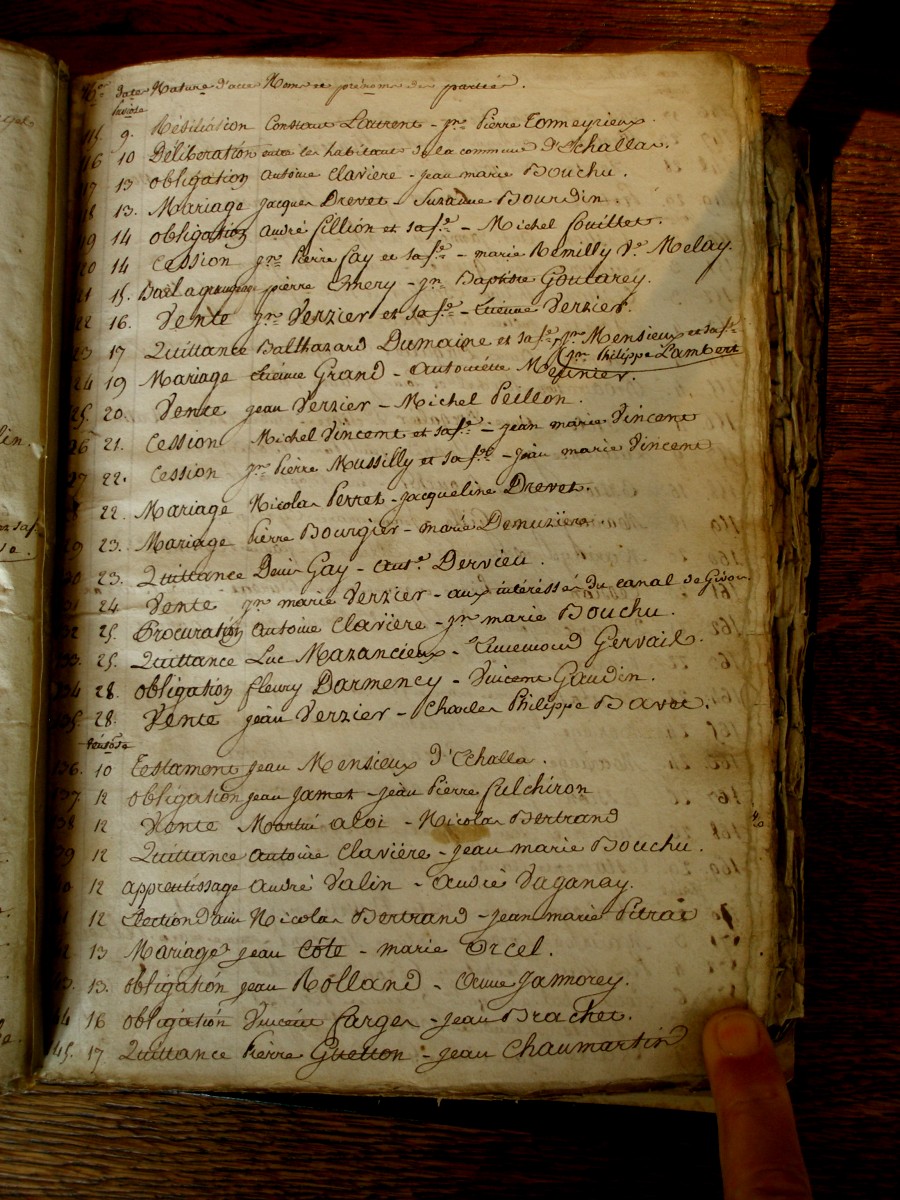 N.os dates Nature d'acte Noms et prénoms des parties.
Pluviose
115 9. Résiliation Constant Laurent - jn. Pierre Tonneyrieux.
116 10 Déliberation entre les habitants de la commune d'Echallas.
117 13 obligation antoine claviere - jean marie Bouchu.
118 13. Mariage jacques Drevet - Suzanne Bourdin.
119 14 obligation andré fillion et sa fe. - Michel fouillet.
120 14 Cession jn. Pierre fay et sa fe. - marie Remilly Ve. Melay.
121 15. Bail a grangeage pierre Emery - jn. Baptiste Goutarey.
122 16. Vente jn. Verzier et sa fe. - Etienne Verzier.
123 17 Quittance Balthazard Dumaine et sa fe. - jn. Mensieux et sa fe.
jn. Philippe Lambert
124 19 Mariage Etienne Grand - antoinette Meunier.
125. 20. Vente jean Verzier - Michel Peillon.
126 21. Cession Michel Vincent et sa fe. - jean marie Vincent
127 22. Cession jn. Pierre Mussilly et sa fe. - jean marie Vincent
8 22. Mariage Nicolas Perret - jacqueline Drevet.
129 23. Mariage Pierre Bourgier - marie Demuziere.
130 23. Quittance Denis Gay - ant.e Dervieu.
131 24 Vente jn. marie Verzier - aux intéressés du canal de Givors.
132 25. Procuration Antoine Claviere - jn. marie Bouchu.
133. 25. Quittance Luc Mazancieux - Ennemond Gervais.
134 28. obligation fleury Darmency - Vincent Gaudin.
135. 28. Vente jean Verzier - Charles Philippe Bavet.
Ventose
136. 10 Testament jean Mensieux d'Echallas.
137 12 obligation jean jamet - jean Pierre fulchiron
138 12 Vente Martin aloi - Nicolas Bertrand
139 12 Quittance antoine Claviére - jean marie Bouchu.
0 12 apprentissage andré Valin - andré Vaganay.
1 12 Election d'ami Nicolas Bertrand - jean marie Pitrat
2 13 Mariage jean Côte - marie Orcel.
3. 13. obligation jean Rolland - jamorey.
44 16 obligation Vincent farges - jean Brachet.
45. 17 Quittance Pierre Guetton - jean Chaumartin